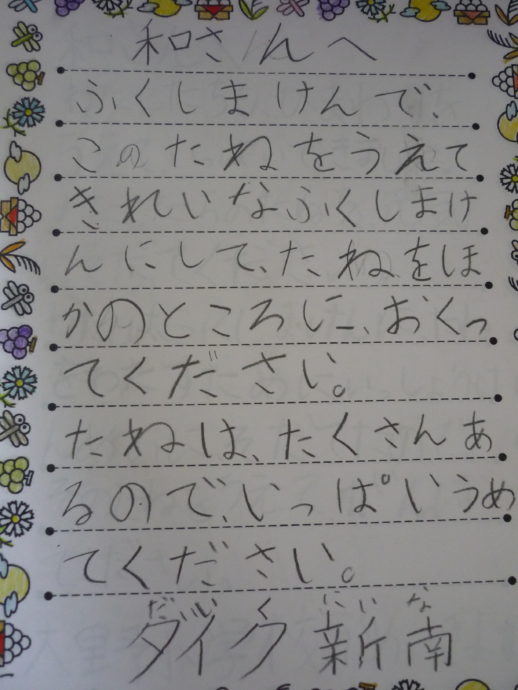 和さんへ
ふくしまけんで、
このたねをうえて
きれいなふくしまけ
んにして、たねをほ
かのところに、おくっ
てください。
たねは、たくさんあ
るので、いっぱいうめ
てください。
だいく にいな
ダイク 新南